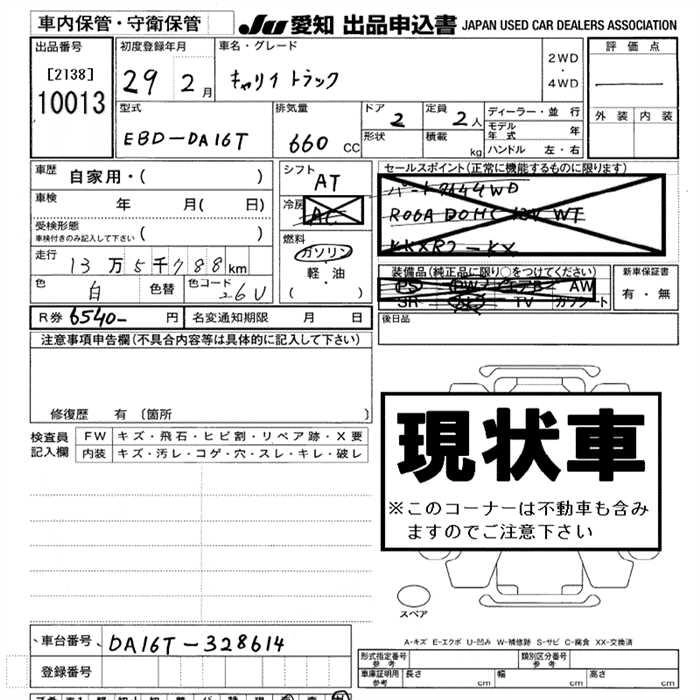 車内保管・守衛保管
JU 愛知 出品申込書 JAPAN USED CAR DEALERS ASSOCIATION
出品番号 初度登録年月 車名・グレード 評価点
[2138] 10013
29 2月
キャリイトラック
2WD・4WD
外装 内装
型式 EBD-DA16T
排気量 660 CC
ドア 2 形状
定員 2人 積載 kg
ディーラー・並行
モデル年式 年
ハンドル 左・右
車歴 自家用・( )
車検 年 月( 日)
受検形態 車検付きのみ記入して下さい ( )
走行 13万5千788km
色 白 色替 色コード 26U
R券 6540- 円 名変通知期限 月 日
シフト AT
冷房 AC
燃料 ガソリン
軽・油
( ・ )
セールスポイント(正常に機能するものに限ります)
R06A DOHC 12V VVT
装備品(純正品に限り○をつけてください)
PS PW エアB AW
SR TV カワシート
新車保証書
有・無
後日品
注意事項申告欄(不具合内容等は具体的に記入して下さい)
修復歴 有 〔箇所 〕
検査員記入欄
FW キズ・飛石・ヒビ割・リペア跡・X要
内装 キズ・汚レ・コゲ・穴・スレ・キレ・破レ
現状車
※このコーナーは不動車も含み
ますのでご注意下さい
スペア
A-キズ E-エクボ U-凹み W-補修跡 S-サビ C-腐食 XX-交換済
車台番号 DA16T-328614
登録番号
形式指定番号 参考 類別区分番号 参考
車庫証明用 参考 長さ cm 幅 cm 高さ cm